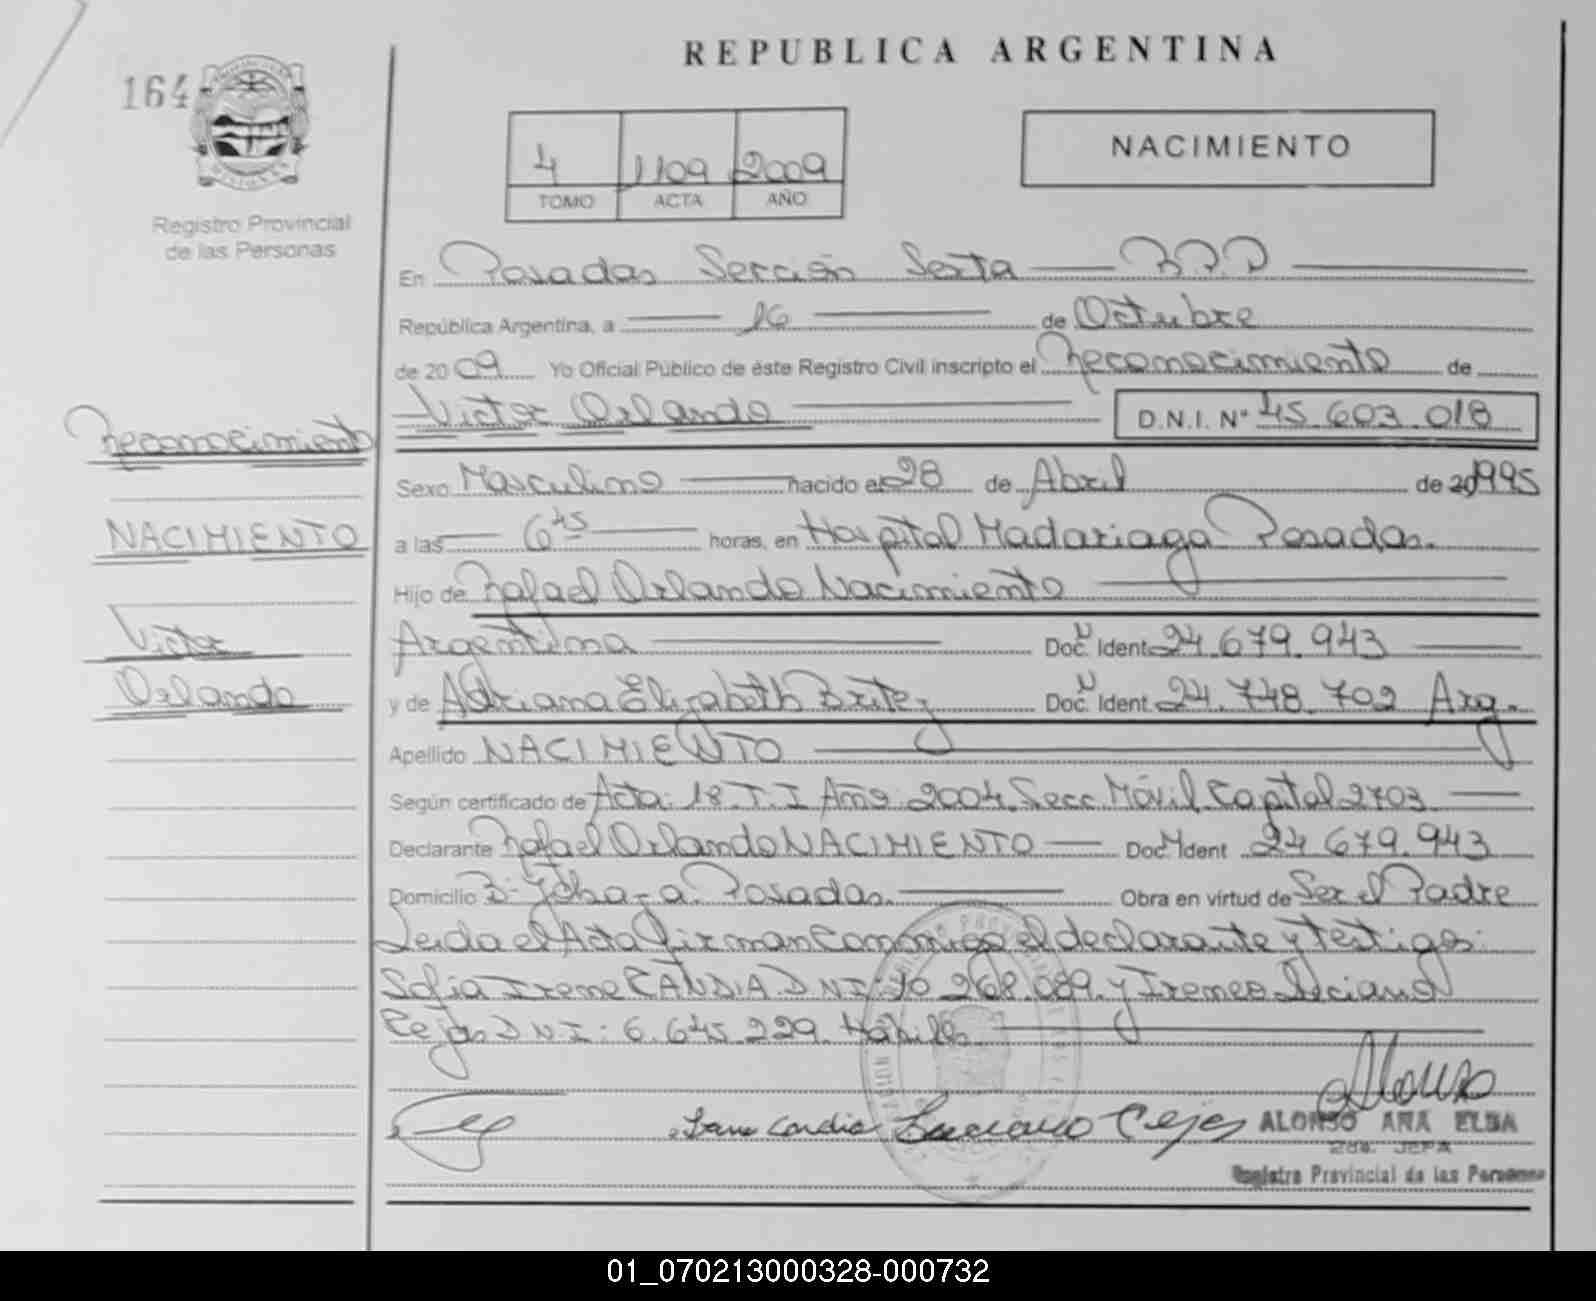 REPUBLICA ARGENTINA
164
4 1109 2009
TOMO ACTA AÑO
NACIMIENTO
Registro Provincial
de las Personas
En Posadas Sección Sexta R.P.P
República Argentina, a 16 de Octubre
de 2009 Yo Oficial Público de éste Registro Civil inscripto el Reconocimiento de
Victor Orlando D.N.I. Nº 45.603.018
Reconocimiento
Sexo Masculino nacido el 28 de Abril de 20 1995
NACIMIENTO
a las 6 45 horas, en Hospital Madariaga Posadas.
Hijo de Rafael Orlando Nacimiento
Victor
Argentina Doc. Ident. 24.679.943
Orlando
y de Adriana Elizabeth Britez Doc. Ident. 24.748.702 Arg.
Apellido NACIMIENTO
Según certificado de Acta: 18. T. I Año: 2004. Secc. Móvil Capital 2703
Declarante Rafael Orlando NACIMIENTO Doc. Ident 24.679.943
Domicilio Posadas. Obra en virtud de Ser el Padre
Leida el Acta firman Conmigo el declarante y testigos:
Sofia Irene CANDIA D.N.I: 10.268.089. y Ireneo Luciano
Cejas D.N.I: 6.645.229. Hábiles.
Irene Candia Luciano Cejas
ALONSO ANA ELBA
2da. JEFA
Registro Provincial de las Personas
01_070213000328-000732